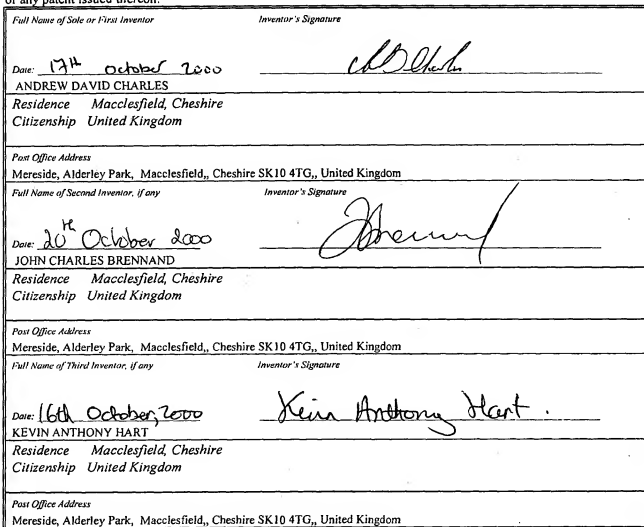 of any patent issued thereon.
Full Name of Sole or First Inventor Inventor's Signature
Date: 17th October 2000
ANDREW DAVID CHARLES
Residence Macclesfield, Cheshire
Citizenship United Kingdom
Post Office Address
Mereside, Alderley Park, Macclesfield,, Cheshire SK10 4TG,, United Kingdom
Full Name of Second Inventor, if any Inventor's Signature
Date: 20th October 2000
JOHN CHARLES BRENNAND
Residence Macclesfield, Cheshire
Citizenship United Kingdom
Post Office Address
Mereside, Alderley Park, Macclesfield,, Cheshire SK10 4TG,, United Kingdom
Full Name of Third Inventor, if any Inventor's Signature
Date: 16th October, 2000 Kevin Anthony Hart.
KEVIN ANTHONY HART
Residence Macclesfield, Cheshire
Citizenship United Kingdom
Post Office Address
Mereside, Alderley Park, Macclesfield,, Cheshire SK10 4TG,, United Kingdom